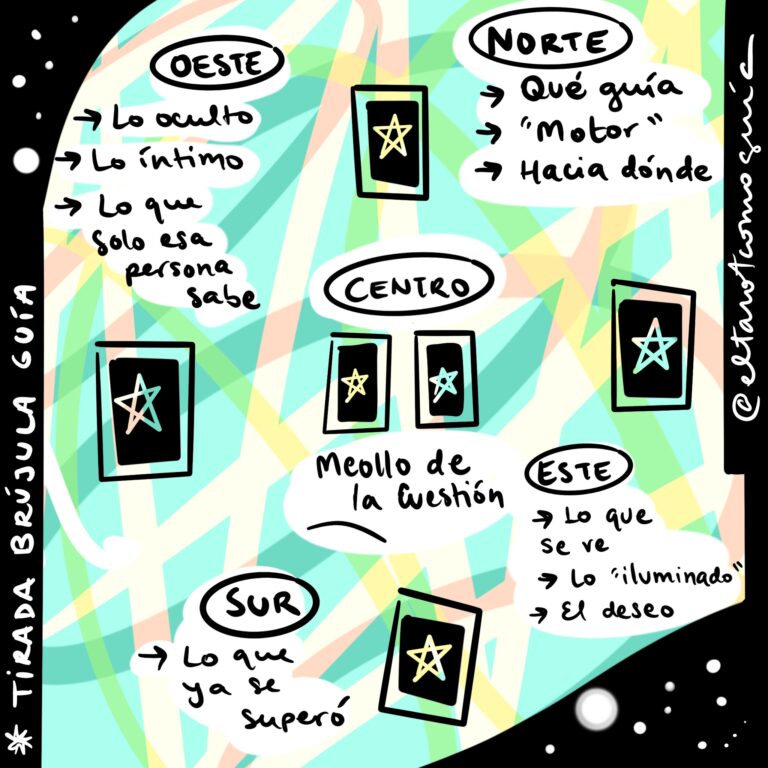 OESTE
→ Lo oculto
→ Lo íntimo
→ Lo que
solo esa
persona
sabe
NORTE
→ Qué guía
→ "Motor"
→ Hacia dónde
CENTRO
Meollo de
la Cuestión
ESTE
→ Lo que
se ve
→ Lo "iluminado"
→ El deseo
SUR
→ Lo que
ya se
superó
* TIRADA BRÚJULA GUÍA
@eltarotcomoguia